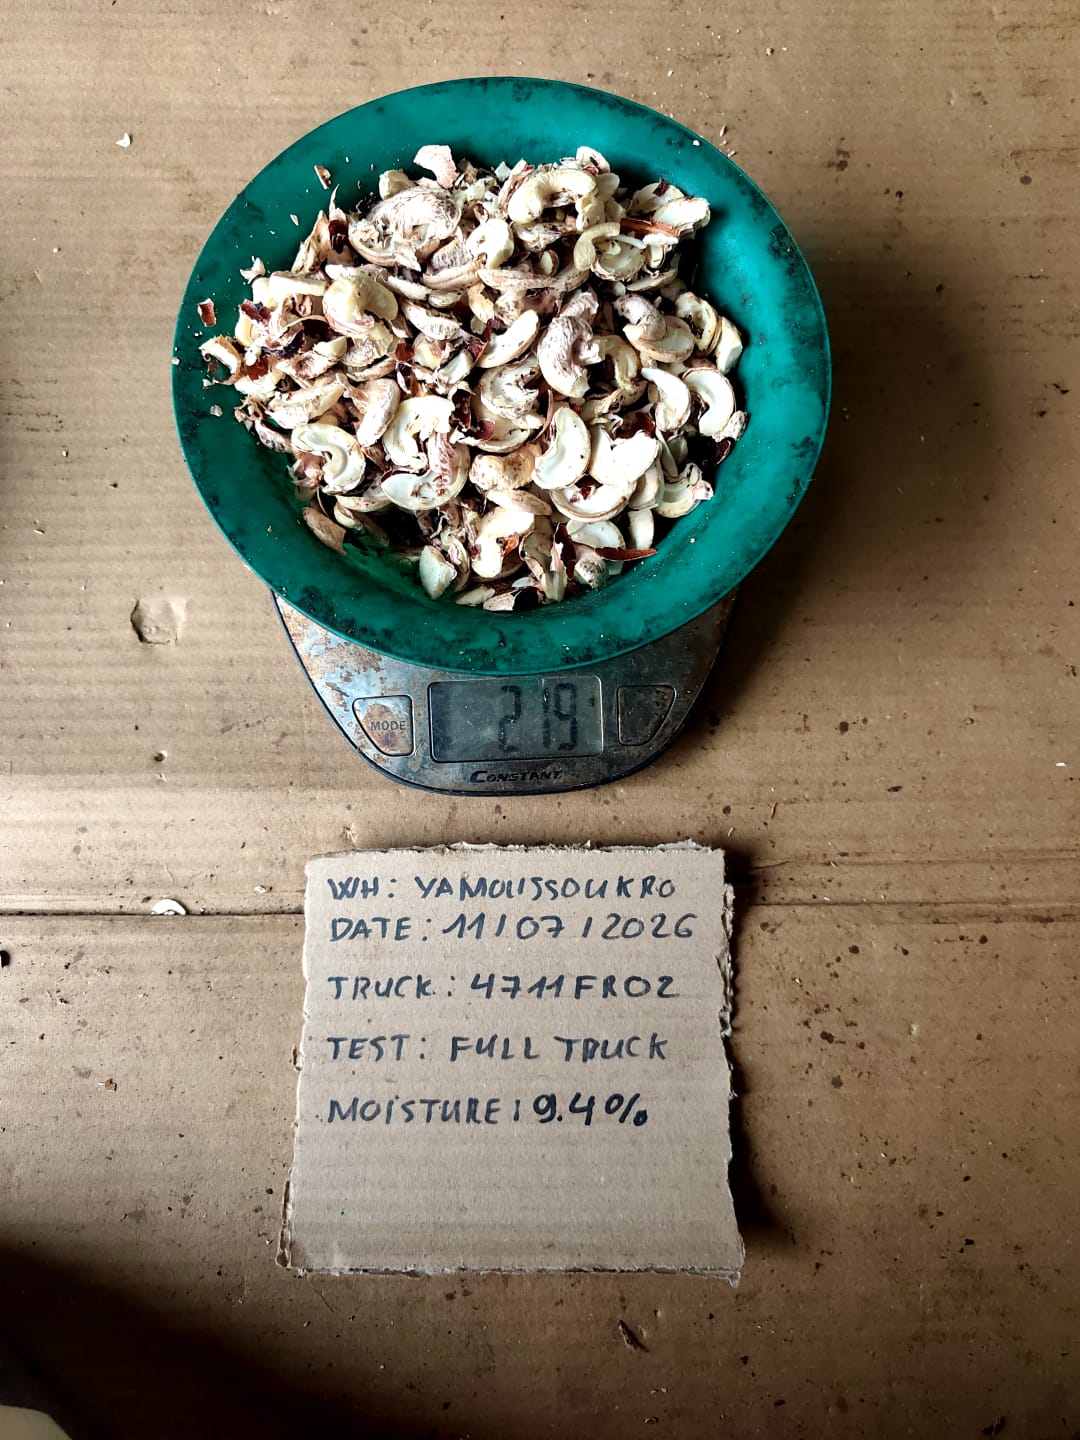 MODE
219
CONSTANT
WH: YAMOUSSOUKRO
DATE: 11/07/2026
TRUCK: 4711FR02
TEST: FULL TRUCK
MOISTURE: 9.4%